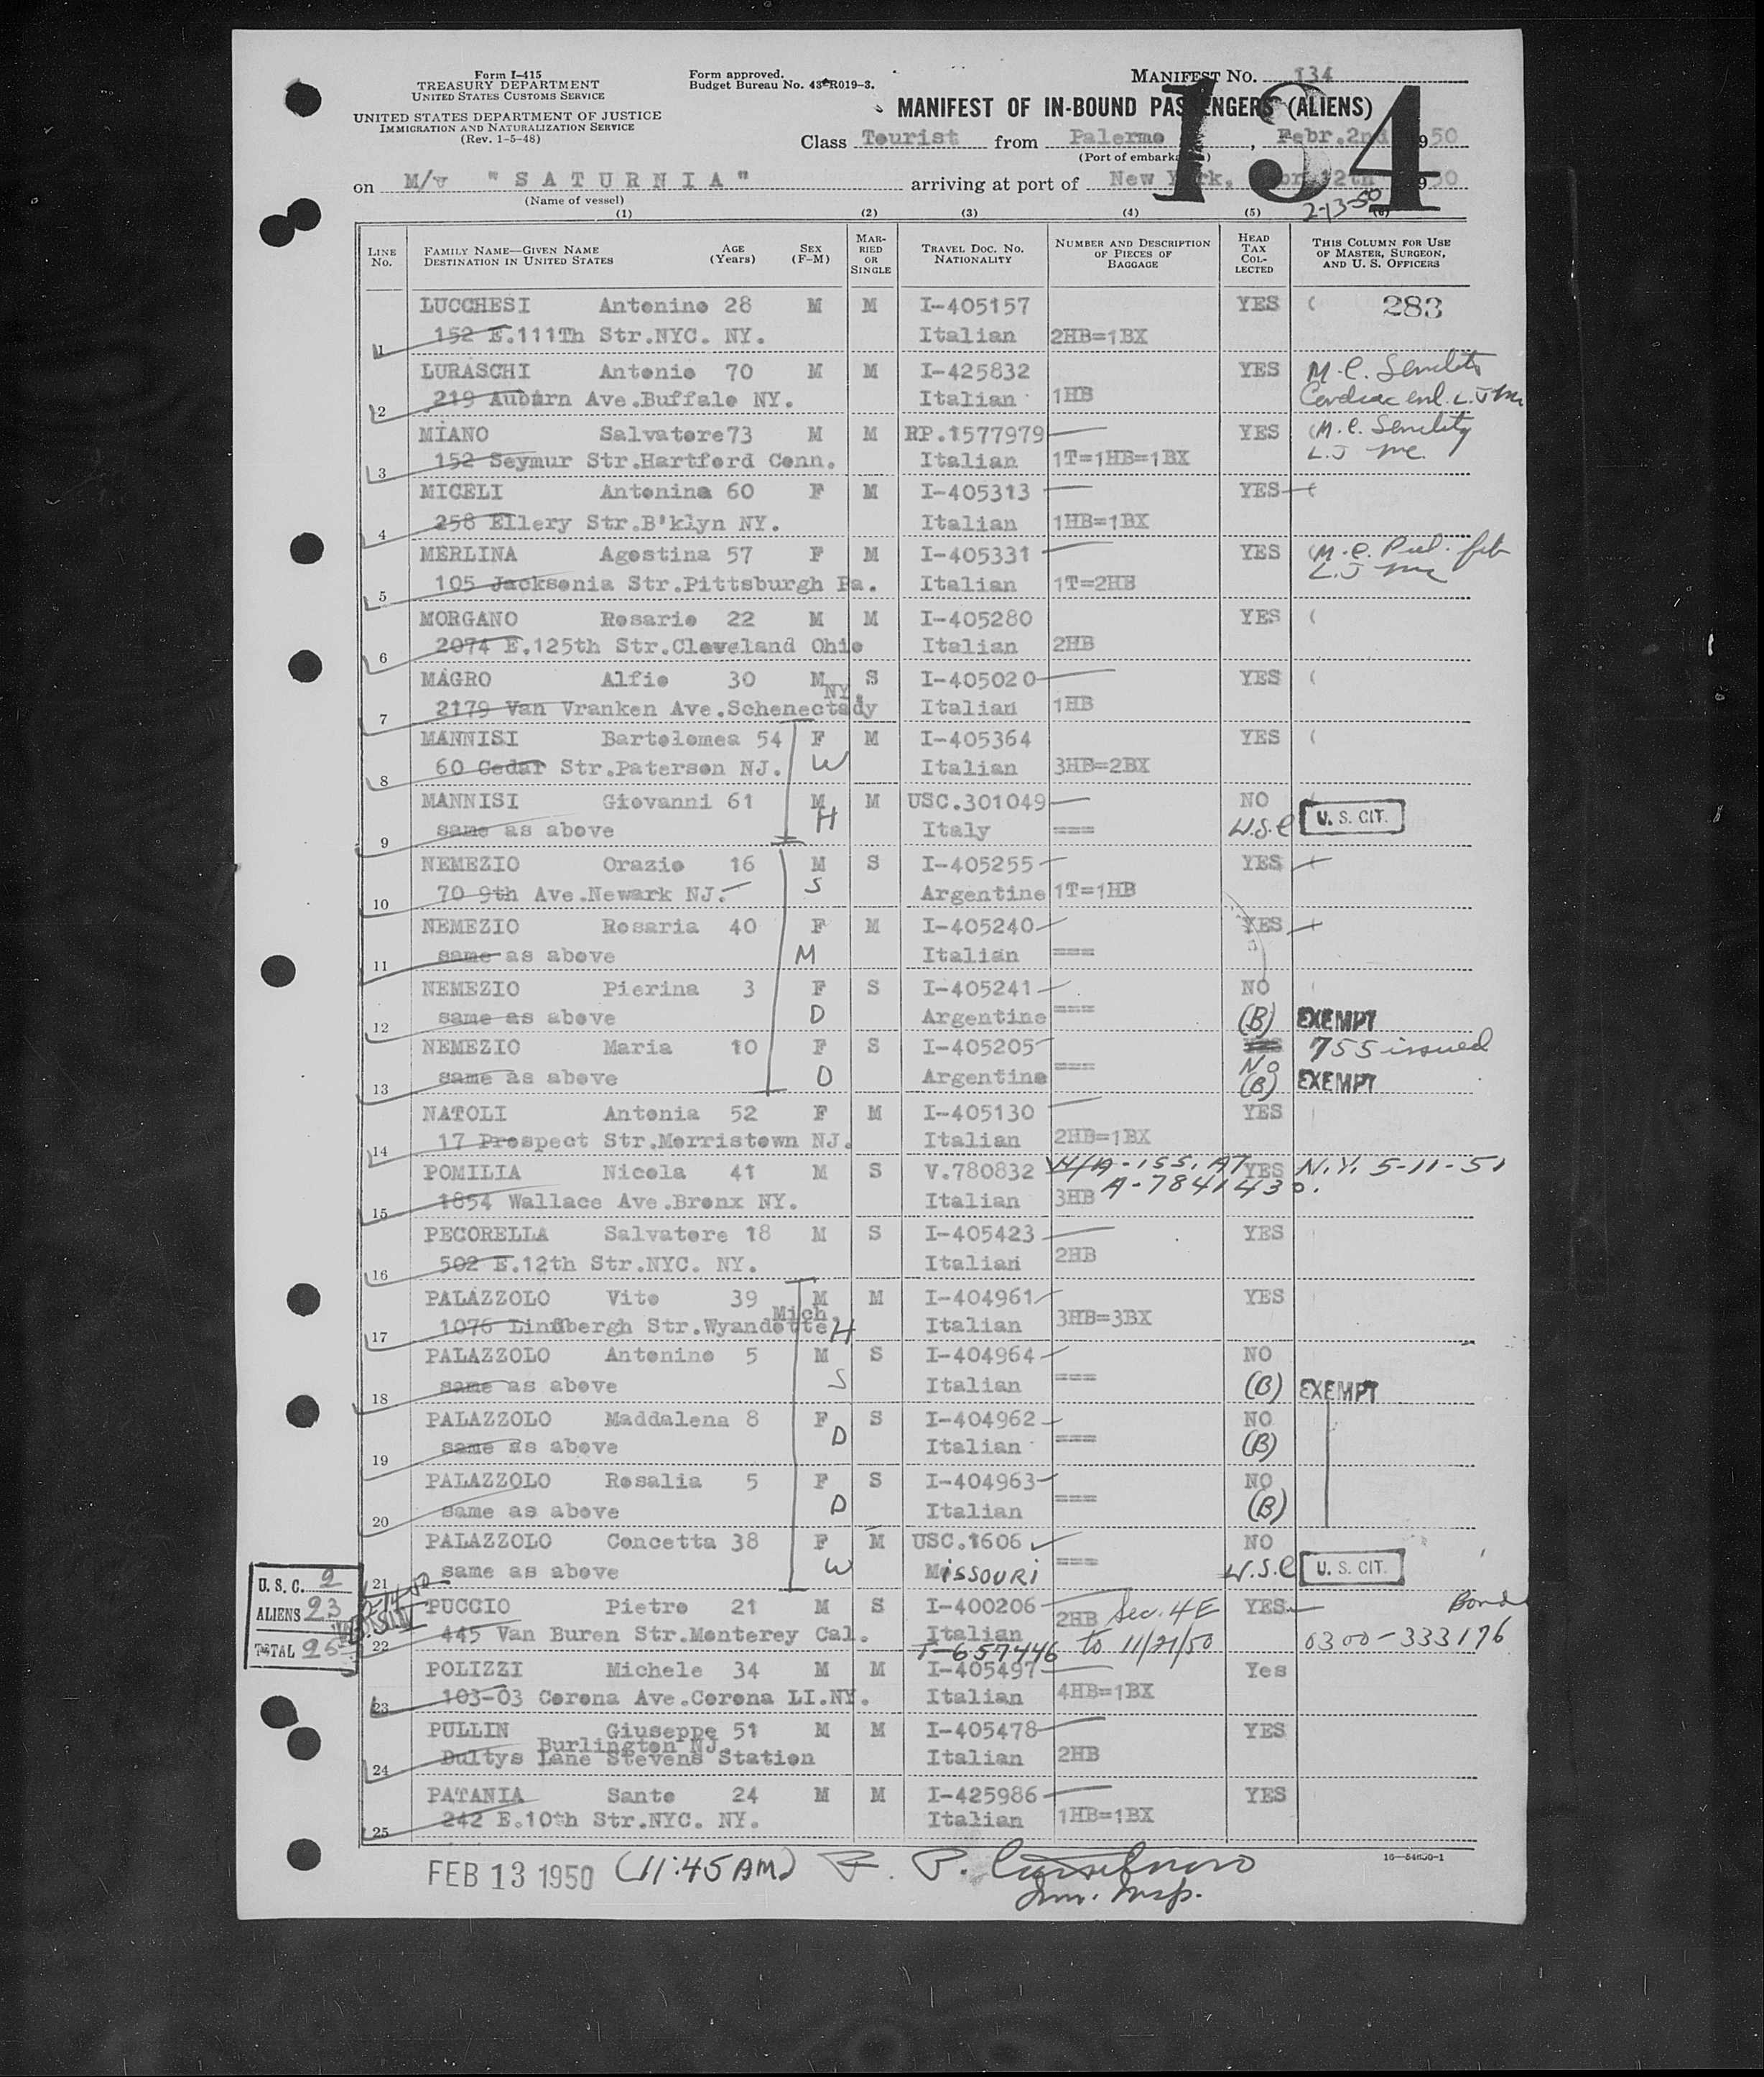 Form I-415
TREASURY DEPARTMENT
UNITED STATES CUSTOMS SERVICE
UNITED STATES DEPARTMENT OF JUSTICE
IMMIGRATION AND NATURALIZATION SERVICE
(Rev. 1-5-48)
Form approved.
Budget Bureau No. 43-R019-3.
MANIFEST No. 134
134
MANIFEST OF IN-BOUND PASSENGERS (ALIENS)
Class Tourist from Palermo, Febr.2nd 1950
(Port of embarkation)
on M/v "SATURNIA" arriving at port of New York, 12th 1950
(Name of vessel)
2-13-50
(1) (2) (3) (4) (5) (6)
LINE No. FAMILY NAME—GIVEN NAME DESTINATION IN UNITED STATES AGE (Years) SEX (F-M) MARRIED OR SINGLE TRAVEL DOC. NO. NATIONALITY NUMBER AND DESCRIPTION OF PIECES OF BAGGAGE HEAD TAX COLLECTED THIS COLUMN FOR USE OF MASTER, SURGEON, AND U. S. OFFICERS
LUCCHESI Antonino 28 M M I-405157 YES ( 283
1 152 E.111Th Str.NYC. NY. Italian 2HB=1BX
LURASCHI Antonio 70 M M I-425832 YES M.C. Senility
2 219 Auburn Ave.Buffalo NY. Italian 1HB Cardiac enl. L.J Mc
MIANO Salvatore 73 M M RP.1577979 YES (M.C. Senility
3 152 Seymur Str.Hartford Conn. Italian 1T=1HB=1BX L.J Mc.
MICELI Antonina 60 F M I-405313 YES (
4 258 Ellery Str.B'klyn NY. Italian 1HB=1BX
MERLINA Agostina 57 F M I-405331 YES (M.C. Pul. fib
5 105 Jacksonia Str.Pittsburgh Pa. Italian 1T=2HB L.J Mc
MORGANO Rosario 22 M M I-405280 YES (
6 2074 E.125th Str.Cleveland Ohio Italian 2HB
MAGRO Alfio 30 M S I-405020 YES (
NY.
7 2179 Van Vranken Ave.Schenectady Italian 1HB
MANNISI Bartolomea 54 F M I-405364 YES (
8 60 Cedar Str.Paterson NJ. W Italian 3HB=2BX
MANNISI Giovanni 61 M M USC.301049 NO
9 same as above H Italy === U.S.C U. S. CIT.
NEMEZIO Orazio 16 M S I-405255 YES
10 70 9th Ave.Newark NJ. S Argentine 1T=1HB
NEMEZIO Rosaria 40 F M I-405240 YES
11 same as above M Italian ===
NEMEZIO Pierina 3 F S I-405241 NO
12 same as above D Argentine === (B) EXEMPT
NEMEZIO Maria 10 F S I-405205 YES 755 issued
13 same as above D Argentine === No (B) EXEMPT
NATOLI Antonia 52 F M I-405130 YES
14 17 Prospect Str.Morristown NJ. Italian 2HB=1BX
POMILIA Nicola 41 M S V.780832 W/A-ISS. AT YES N.Y. 5-11-51
15 1854 Wallace Ave.Bronx NY. Italian 3HB A-7841430.
PECORELLA Salvatore 18 M S I-405423 YES
16 502 E.12th Str.NYC. NY. Italian 2HB
PALAZZOLO Vito 39 M M I-404961 YES
Mich.
17 1076 Lindbergh Str.Wyandotte H Italian 3HB=3BX
PALAZZOLO Antonino 5 M S I-404964 NO
18 same as above S Italian === (B) EXEMPT
PALAZZOLO Maddalena 8 F S I-404962 NO
19 same as above D Italian === (B)
PALAZZOLO Rosalia 5 F S I-404963 NO
20 same as above D Italian === (B)
PALAZZOLO Concetta 38 F M USC.1606 NO
21 same as above W MISSOURI === U.S.C U. S. CIT.
PUCCIO Pietro 21 M S I-400206 2HB Sec. 4E YES Bond
22 445 Van Buren Str.Monterey Cal. Italian to 11/21/50 0300-333176
T-657446
POLIZZI Michele 34 M M I-405497 Yes
23 103-03 Corona Ave.Corona LI.NY. Italian 4HB=1BX
PULLIN Giuseppe 51 M M I-405478 YES
Burlington NJ.
24 Dultys Lane Stevens Station Italian 2HB
PATANIA Santo 24 M M I-425986 YES
25 242 E.10th Str.NYC. NY. Italian 1HB=1BX
U. S. C. 2
ALIENS 23
TOTAL 25
FEB 13 1950 (11:45 AM)
Imm. Insp.
16—54600-1